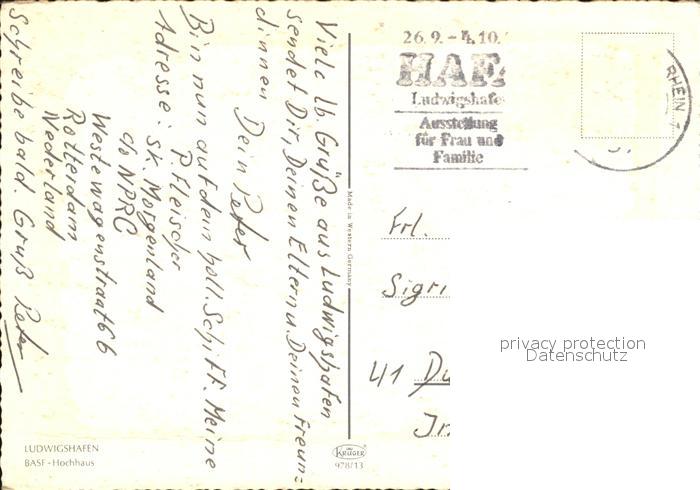 Viele lb. Grüße aus Ludwigshafen
sendet Dir, Deinen Eltern u. Deinen Freun-
dinnen Dein Peter
Bin nun auf dem holl. Schiff. Meine
Adresse: P. Fleischer
sk. Morgenland
c/o NPRC
Westewagenstraat 66
Rotterdam
Nederland
Schreibe bald. Gruß Peter
LUDWIGSHAFEN
BASF-Hochhaus
Made in Western Germany
KRÜGER
978/13
26.9. - 4.10.
HAF
Ludwigshafe
Ausstellung
für Frau und
Familie
RHEIN 1
Frl.
Sigri
41 Du
privacy protection
Datenschutz